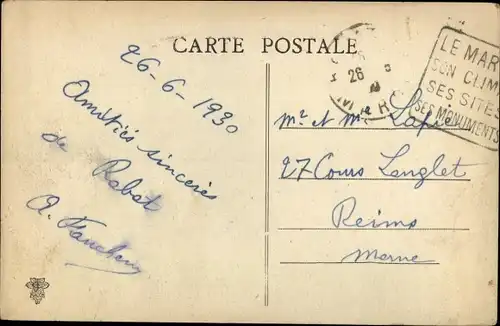 CARTE POSTALE
26-6-1930
Amitiés sincères
de Rabat
A.
26
LE MAR
SON CLIM
SES SITES
SES MONUMENTS
Mr et Me Lapie
27 Cours Langlet
Reims
Marne